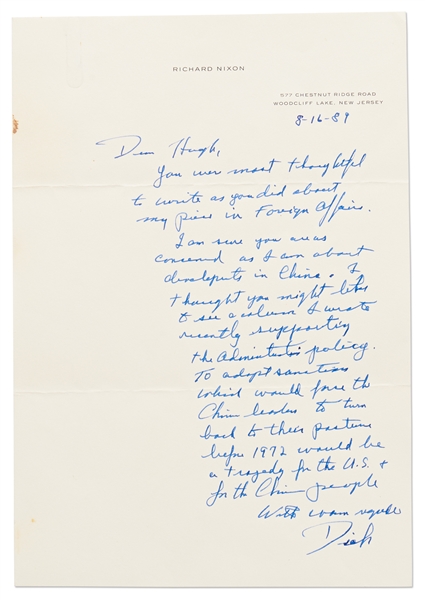 RICHARD NIXON
577 CHESTNUT RIDGE ROAD
WOODCLIFF LAKE, NEW JERSEY
8-16-89
Dear Hugh,
You were most thoughtful
to write as you did about
my piece in Foreign Affairs.
I am sure you are as
concerned as I am about
developments in China. I
thought you might like
to see a column I wrote
recently supporting
the Administration policy.
To adopt sanctions
which would force the
Chinese leaders to turn
back to their posture
before 1972 would be
a tragedy for the U.S. &
for the Chinese people
With warm regards
Dick